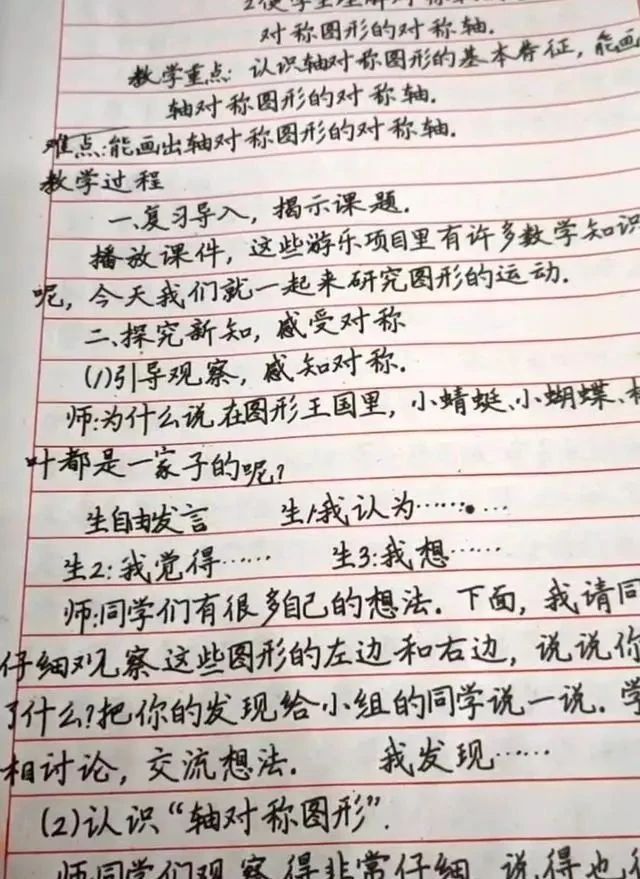 2使学生理解对称
对称图形的对称轴.
教学重点:认识轴对称图形的基本特征,能画
轴对称图形的对称轴.
难点:能画出轴对称图形的对称轴.
教学过程
一、复习导入,揭示课题.
播放课件,这些游乐项目里有许多数学知识
呢,今天我们就一起来研究图形的运动.
二、探究新知,感受对称
(1)引导观察,感知对称.
师:为什么说在图形王国里,小蜻蜓、小蝴蝶、
叶都是一家子的呢?
生自由发言 生1:我认为……
生2:我觉得…… 生3:我想……
师:同学们有很多自己的想法.下面,我请同
仔细观察这些图形的左边和右边,说说你
了什么?把你的发现给小组的同学说一说.学
相讨论,交流想法. 我发现……
(2)认识“轴对称图形”.
师:同学们观察得非常仔细,说得也很